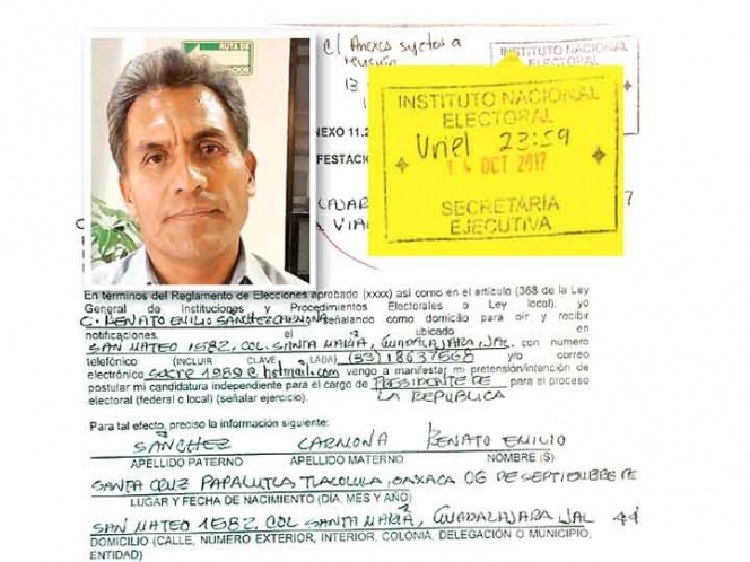 RUTA DE
c/ Anexos sujetos a
revisión
13
INSTITUTO NACIONAL
ELECTORAL
INSTITUTO NACIONAL
ELECTORAL
Uriel 23:59
14 OCT 2017
SECRETARÍA
EJECUTIVA
NEXO 11.2
FESTACI
7
En términos del Reglamento de Elecciones aprobado (xxxx) así como en el artículo (368 de la Ley
General de Instituciones y Procedimientos Electorales o Ley local), yo
C. RENATO EMILIO SÁNCHEZ CARMONA señalando como domicilio para oír y recibir
notificaciones, el ubicado en
SAN MATEO 1582, COL. SANTA MARÍA, GUADALAJARA, JAL. con número
telefónico (INCLUIR CLAVE LADA) (33) 18637568 y/o correo
electrónico sacre 1989@hotmail.com vengo a manifestar mi pretensión/intención de
postular mi candidatura independiente para el cargo de PRESIDENTE DE para el proceso
electoral (federal o local) (señalar ejercicio). LA REPUBLICA
Para tal efecto, preciso la información siguiente:
SÁNCHEZ CARMONA RENATO EMILIO
APELLIDO PATERNO APELLIDO MATERNO NOMBRE (S)
SANTA CRUZ PAPALUTLA, TLACOLULA, OAXACA 06 DE SEPTIEMBRE DE
LUGAR Y FECHA DE NACIMIENTO (DIA, MES Y AÑO)
SAN MATEO 1582, COL SANTA MARÍA, GUADALAJARA JAL 44
DOMICILIO (CALLE, NÚMERO EXTERIOR, INTERIOR, COLONIA, DELEGACIÓN O MUNICIPIO,
ENTIDAD)